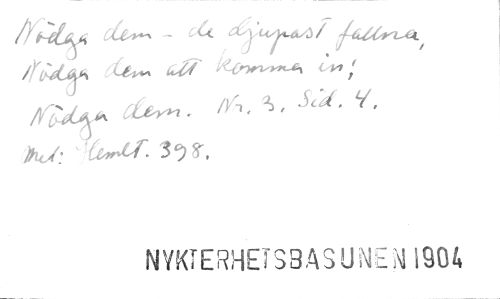 Nödga dem - de djupast fallna,
Nödga dem att komma in!
Nödga dem. Nr. 3. Sid. 4.
Mel: Hemlt. 398.
NYKTERHETSBASUNEN 1904